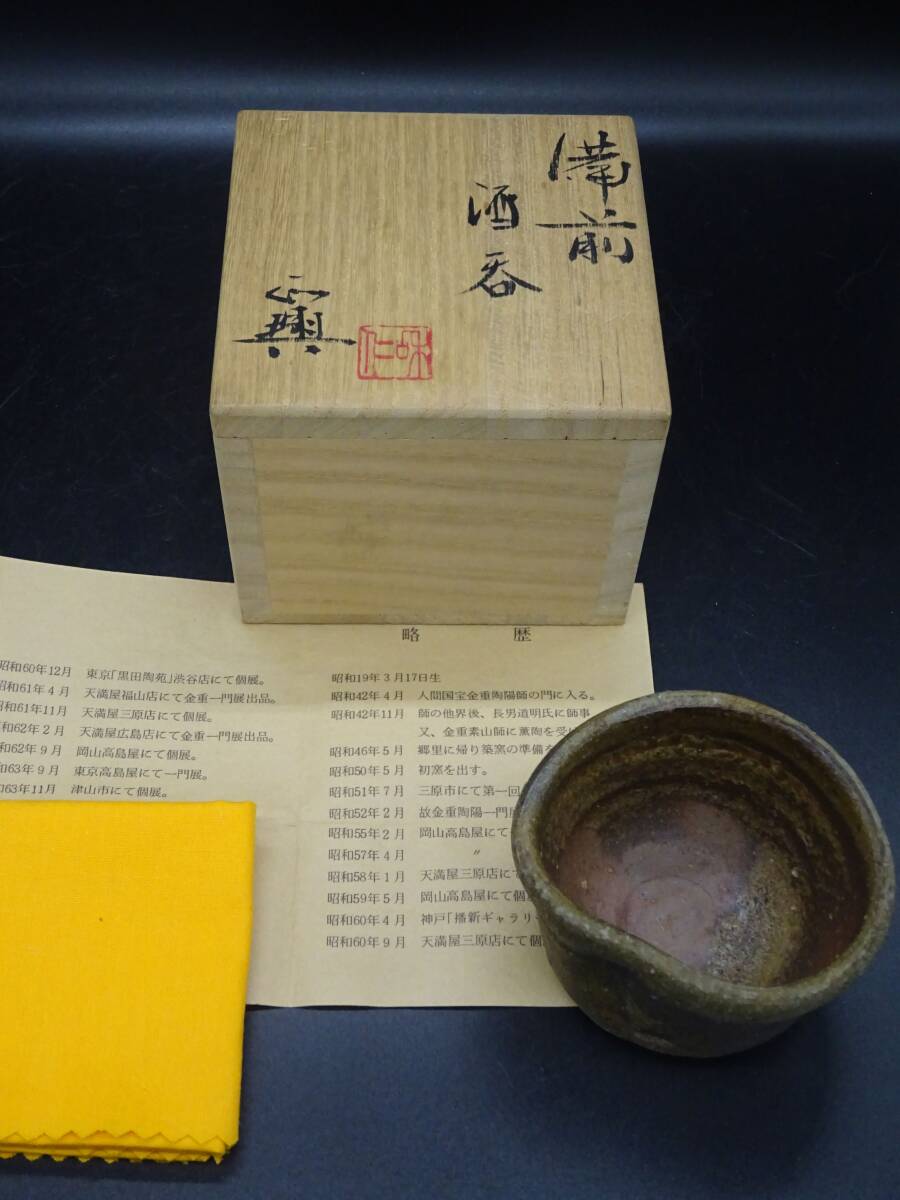 備前
酒呑
正興
略歴
昭和19年3月17日生
昭和42年4月 人間国宝金重陶陽師の門に入る。
昭和42年11月 師の他界後、長男道明氏に師事
又、金重素山師に薫陶を受け
昭和46年5月 郷里に帰り築窯の準備を
昭和50年5月 初窯を出す。
昭和51年7月 三原市にて第一回
昭和52年2月 故金重陶陽一門展
昭和55年2月 岡山高島屋にて
昭和57年4月 〃
昭和58年1月 天満屋三原店にて
昭和59年5月 岡山高島屋にて個展
昭和60年4月 神戸「播新ギャラリー
昭和60年9月 天満屋三原店にて個
昭和60年12月 東京「黒田陶苑」渋谷店にて個展。
昭和61年4月 天満屋福山店にて金重一門展出品。
昭和61年11月 天満屋三原店にて個展。
昭和62年2月 天満屋広島店にて金重一門展出品。
和62年9月 岡山高島屋にて個展。
和63年9月 東京高島屋にて一門展。
和63年11月 津山市にて個展。